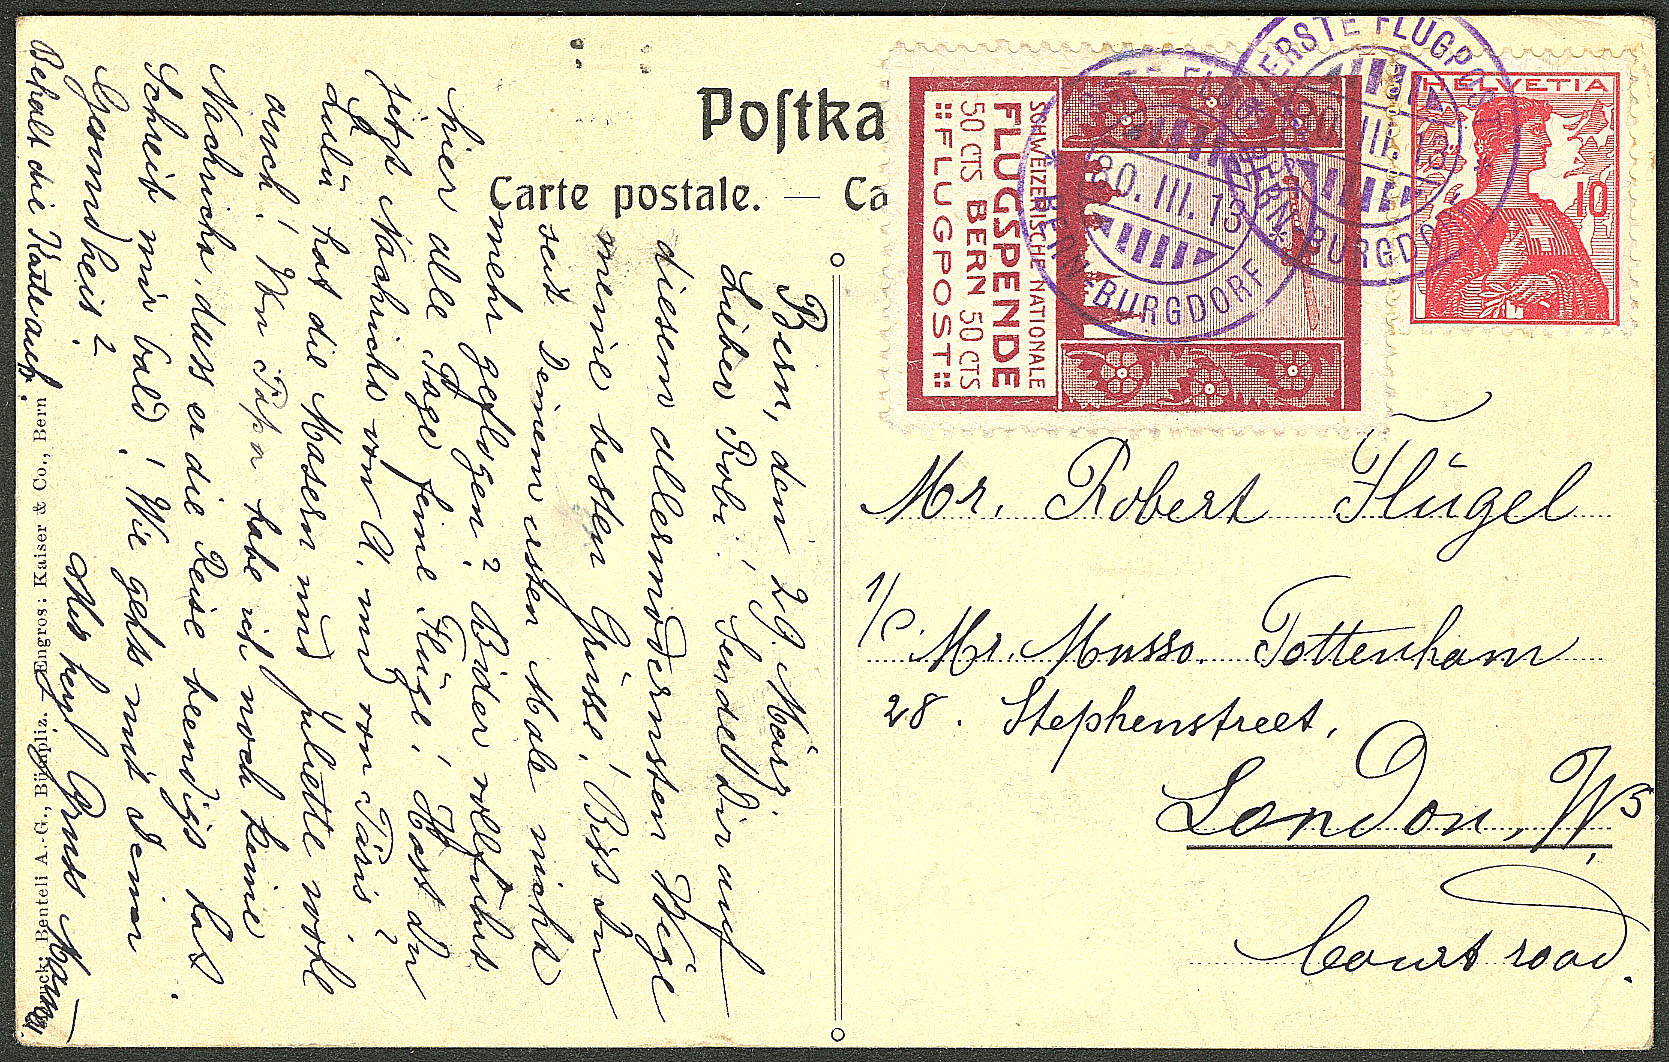 Postka
Carte postale. — Ca
SCHWEIZERISCHE NATIONALE
FLUGSPENDE
50 CTS BERN 50 CTS
::FLUGPOST::
HELVETIA
10
ERSTE FLUGPOST
30. III. 13
BERN * BURGDORF
ERSTE FLUGPOST
III. 13
BERN * BURGDORF
Mr. Robert Flügel
1/C. Mr. Musso. Tottenham
28. Stephenstreet,
London, W5
Court road.
Bern, den 29. März.
Lieber Robi! Sendet Dir auf
diesem allermodernsten Wege
meine besten Grüsse! Bist Du
seit Deinem ersten Male nicht
mehr geflogen? Bider vollführt
hier alle Tage feine Flüge! Hast du
jetzt Nachricht von A. und von Paris?
Lulu hat die Masern und Juliette wohl
auch! Von Papa habe ich noch keine
Nachricht, dass er die Reise beendigt hat.
Schreib mir bald! Wie gehts mit Deiner
Gesundheit?
Behalt die Karte auf.
Druck: Benteli A.-G., Bümpliz. - Engros: Kaiser & Co., Bern